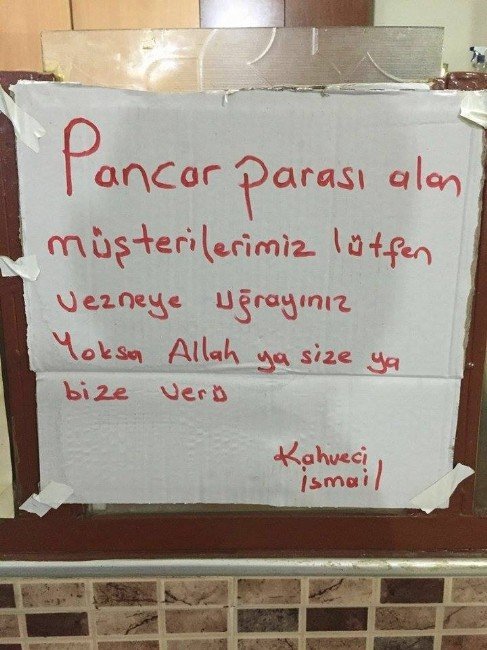 Pancar parası alan
müşterilerimiz lütfen
vezneye uğrayınız
Yoksa Allah ya size ya
bize verü
Kahveci
ismail